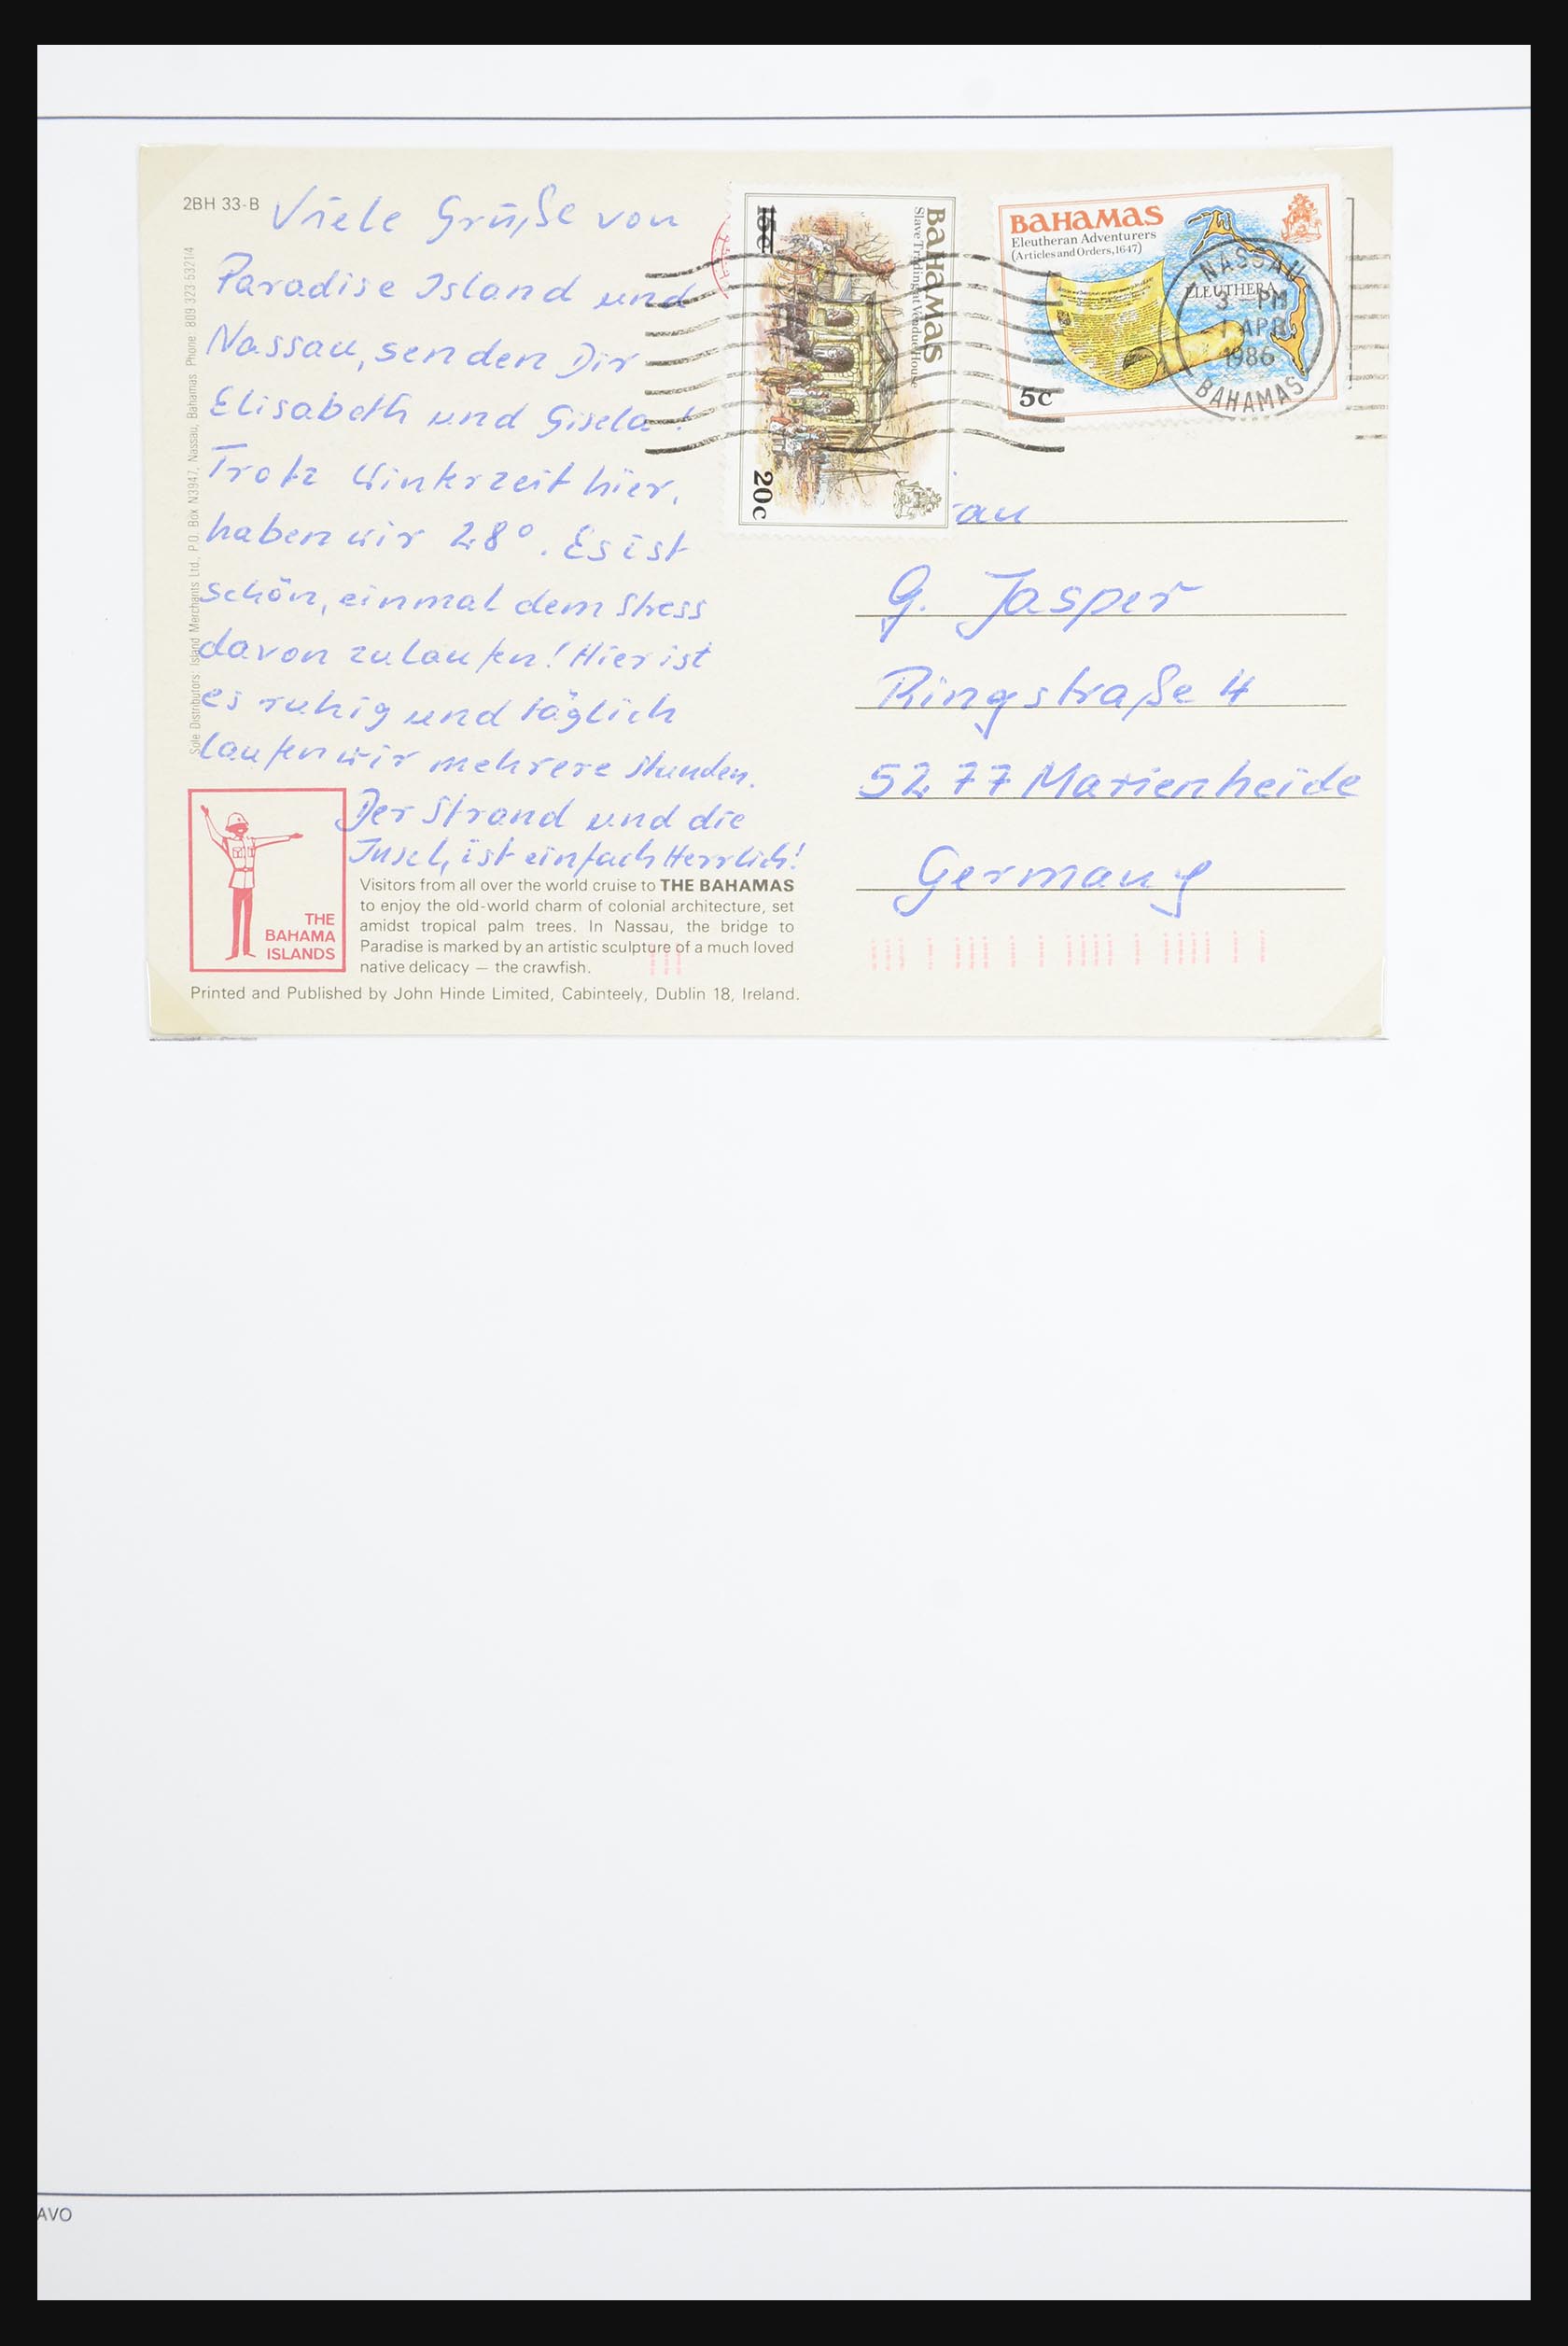 2BH 33-B
Viele Grüße von
Paradise Island und
Nassau, senden Dir
Elisabeth und Gisela!
Trotz Winterzeit hier,
haben wir 28°. Es ist
schön, einmal dem Stress
davon zulaufen! Hier ist
es ruhig und täglich
laufen wir mehrere Stunden.
Der Strand und die
Insel, ist einfach Herrlich!
Sole Distributors: Island Merchants Ltd., P.O. Box N3947, Nassau, Bahamas. Phone: 809 323-5321/4
THE
BAHAMA
ISLANDS
Visitors from all over the world cruise to THE BAHAMAS
to enjoy the old-world charm of colonial architecture, set
amidst tropical palm trees. In Nassau, the bridge to
Paradise is marked by an artistic sculpture of a much loved
native delicacy — the crawfish.
Printed and Published by John Hinde Limited, Cabinteely, Dublin 18, Ireland.
BAHAMAS
Slave Trading at Vendue House
15c
20c
BAHAMAS
Eleutheran Adventurers
(Articles and Orders, 1647)
ELEUTHERA
5c
NASSAU
3 - PM
1 APR
1986
BAHAMAS
au
G. Jasper
Ringstraße 4
5277 Marienheide
Germany
AVO